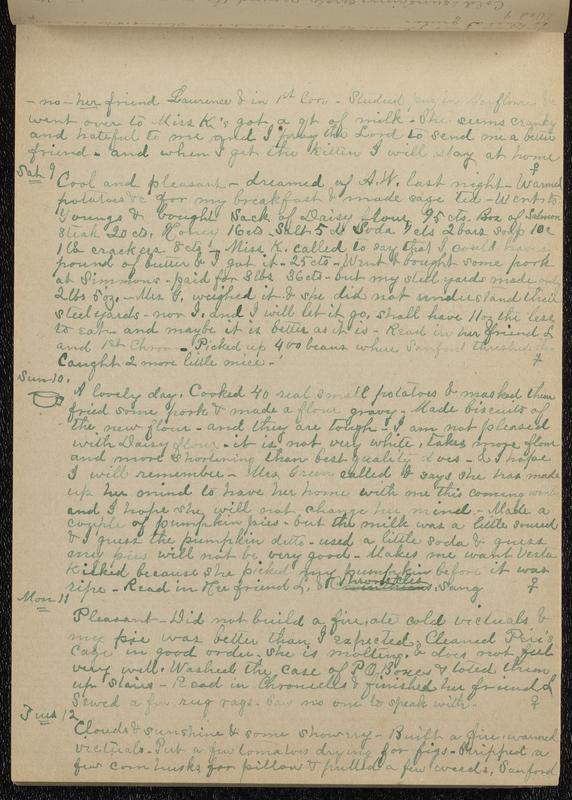 - no - her friend Laurence & in 1st Cor. - Studied
went over to Miss K's got a qt of milk - She seems cranky
and hateful to me and I pray the Lord to send me a better
friend - and when I get the kitten I will stay at home
Sat 9
Cool and pleasant - dreamed of A.W. last night - Warmed
potatoes &c for my breakfast & made sage tea - Went to
Youngs & bought Sack of Daisy flour 95 cts. Box of Salmon
Steak 20 cts. Honey 16 cts. Salt 5 & Soda cts 2 bars soap 10c
1 lb crackers 8 cts - Miss K. called to say that I could have a
pound of butter & I got it - 25 cts - Went & bought some pork
at Simmons - paid for 3 lbs 36 cts - but my steel yards made only
2 lbs 5 oz. - Mrs G. weighed it & she did not understand their
steel yards - nor I. and I will let it go. Shall have 11 oz the less
to eat and maybe it is better as it is - Read in her friend L
and 1st Chron - Picked up 400 beans where Sanford threshed
Caught 2 more little mice -
Sun 10.
A lovely day. Cooked 40 real small potatoes & mashed them
fried some pork & made a flour gravy - Made biscuits of
the new flour - and they are tough - I am not pleased
with Daisy flour - it is not very white, takes more flour
and more shortening than best quality does - & I hope
I will remember - Mrs Green called & says she has made
up her mind to have her home with me this coming winter
and I hope she will not change her mind - Made a
couple of pumpkin pies - but the milk was a little soured
& I guess the pumpkin ditto - used a little soda & guess
my pies will not be very good - Makes me want Verta
kicked because she picked my pumpkin before it was
ripe - Read in Her friend L, & Chronicles, Sang
Mon 11
Pleasant - Did not build a fire, ate cold victuals &
my pie was better than I expected. Cleaned Peri's
cage in good order. She is molting & does not feel
very well. Washed the case of P.O. Boxes & toted them
up stairs - Read in Chronicles & finished her friend L
Sewed a few rug rags - Saw no one to speak with -
Tues 12
Clouds & sunshine & some showery - Built a fire, warmed
victuals - Put a few tomatoes drying for figs - Stripped a
few corn husks for pillow & pulled a few weeds, Sanford